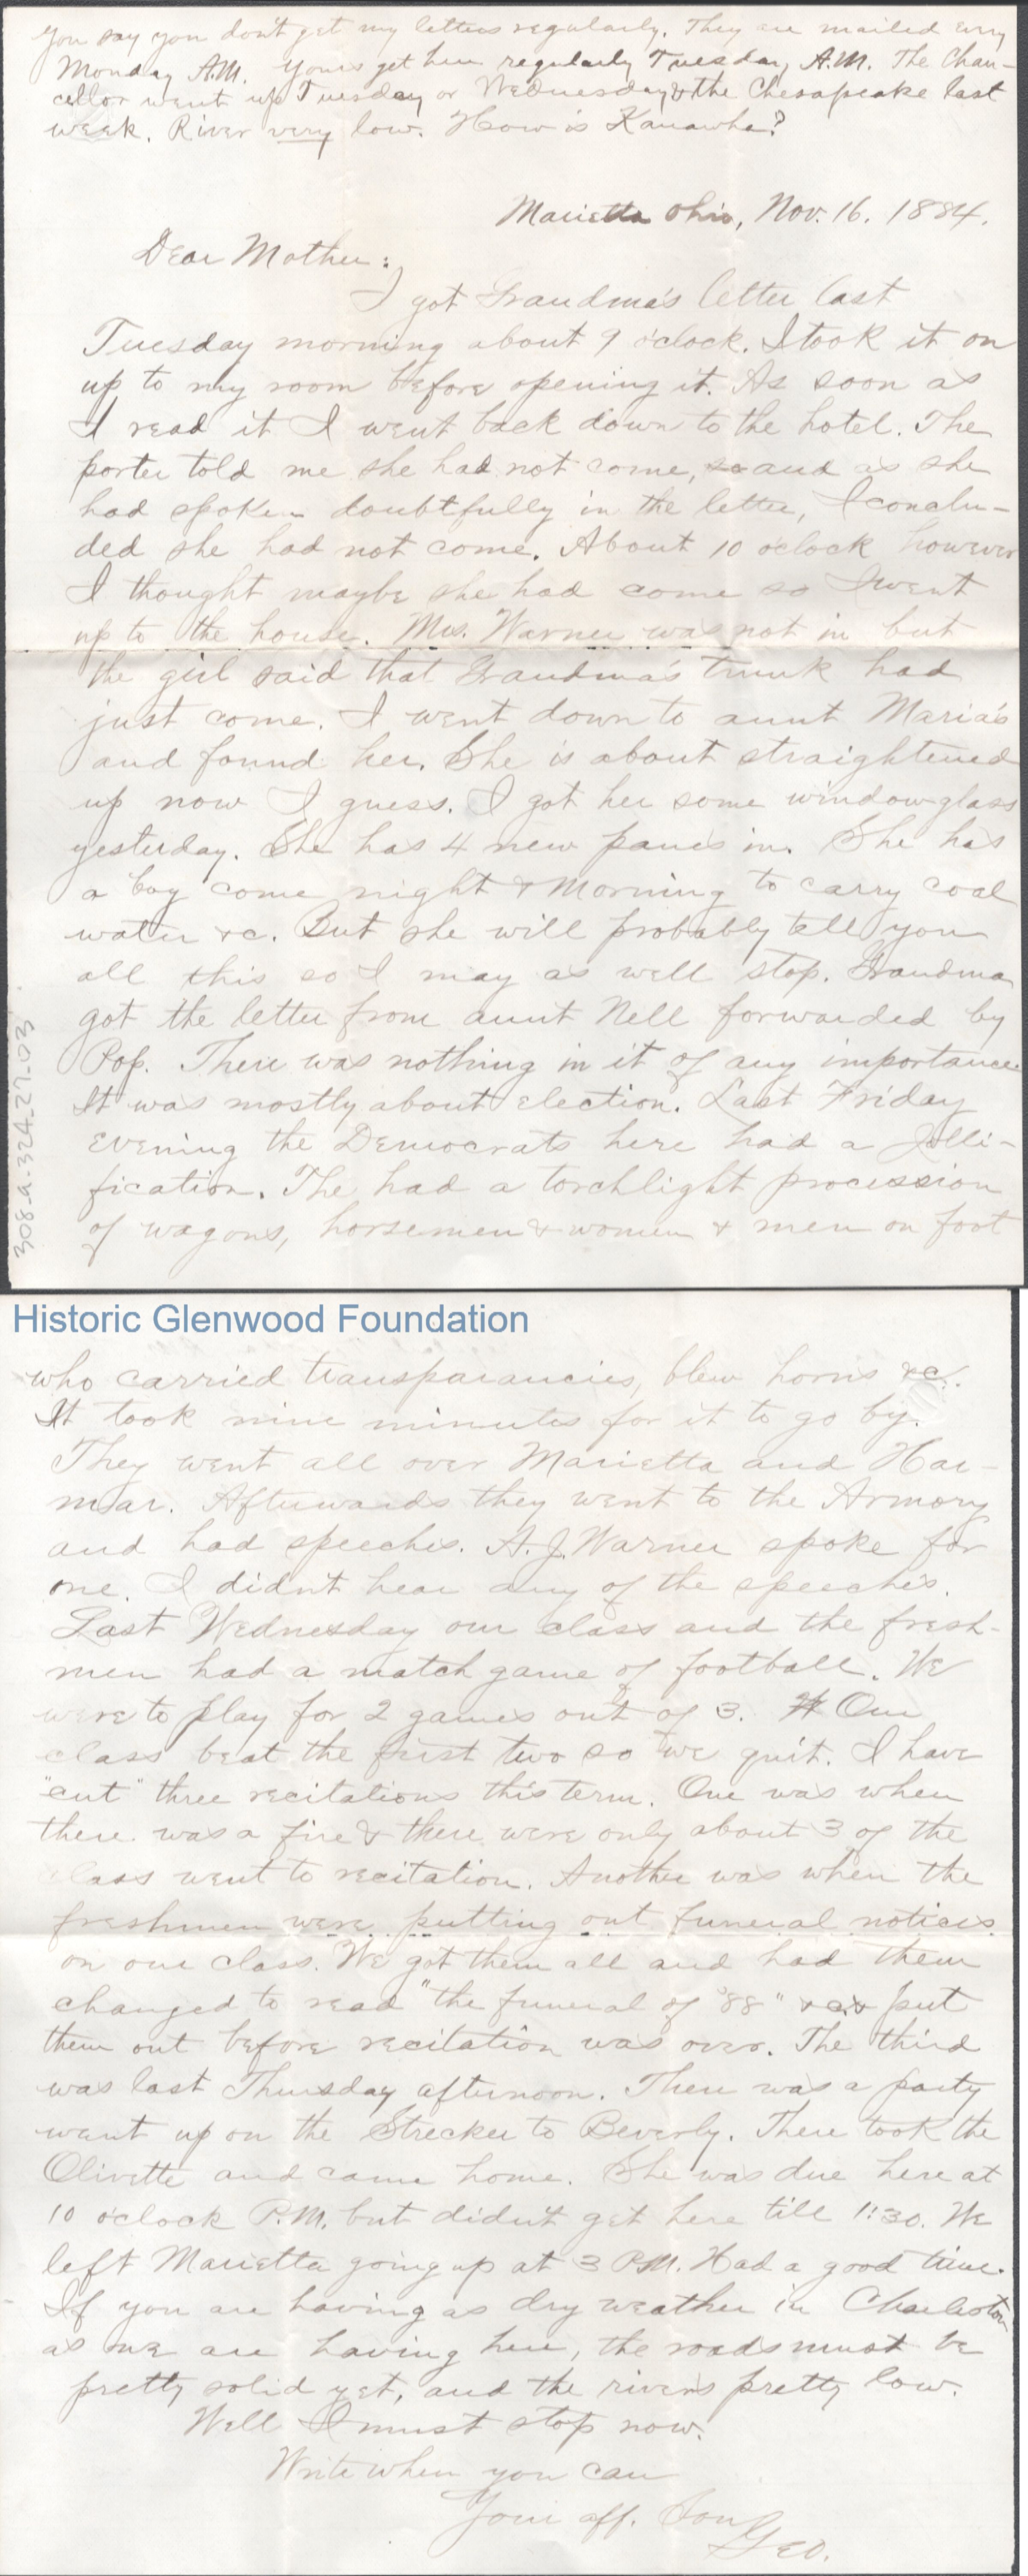 You say you don't get my letters regularly. They are mailed every
Monday A.M. Yours get here regularly Tuesday, A.M. The Chan-
cellor went up Tuesday or Wednesday & the Chesapeake last
week. River very low. How is Kanawha?
Marietta Ohio, Nov. 16. 1884.
Dear Mother:
I got Grandma's letter last
Tuesday morning about 9 o'clock. I took it on
up to my room before opening it. As soon as
I read it I went back down to the hotel. The
porter told me she had not come, so and as she
had spoken doubtfully in the letter, I conclu-
ded she had not come. About 10 o'clock however
I thought maybe she had come so I went
up to the house. Mrs. Warner was not in but
the girl said that Grandma's trunk had
just come. I went down to aunt Maria's
and found her. She is about straightened
up now I guess. I got her some window glass
yesterday. She has 4 new panes in. She has
a boy come night & morning to carry coal
water &c. But she will probably tell you
all this so I may as well stop. Grandma
got the letter from aunt Nell forwarded by
Pop. There was nothing in it of any importance
It was mostly about election. Last Friday
evening the Democrats here had a Jolli-
fication. The had a torchlight procession
of wagons, horsemen & women & men on foot
308-a-324.27-03
Historic Glenwood Foundation
who carried transparancies, blew horns &c.
It took nine minutes for it to go by.
They went all over Marietta and Har-
mar. Afterwards they went to the Armory
and had speeches. A.J. Warner spoke for
one. I didn't hear any of the speeches.
Last Wednesday our class and the fresh-
men had a match game of football. We
were to play for 2 games out of 3. Our
class beat the first two so we quit. I have
"cut" three recitations this term. One was when
there was a fire & there were only about 3 of the
class went to recitation. Another was when the
freshmen were putting out funeral notices
on our class. We got them all and had them
changed to read "the funeral of '88" &c. & put
them out before recitation was over. The third
was last Thursday afternoon. There was a party
went up on the Strecker to Beverly. There took the
Olivette and came home. She was due here at
10 o'clock P.M. but didn't get here till 1:30. We
left Marietta going up at 3 P.M. Had a good time.
If you are having as dry weather in Charleston
as we are having here, the roads must be
pretty solid yet, and the rivers pretty low.
Well I must stop now.
Write when you can
Your aff. Son
Geo.